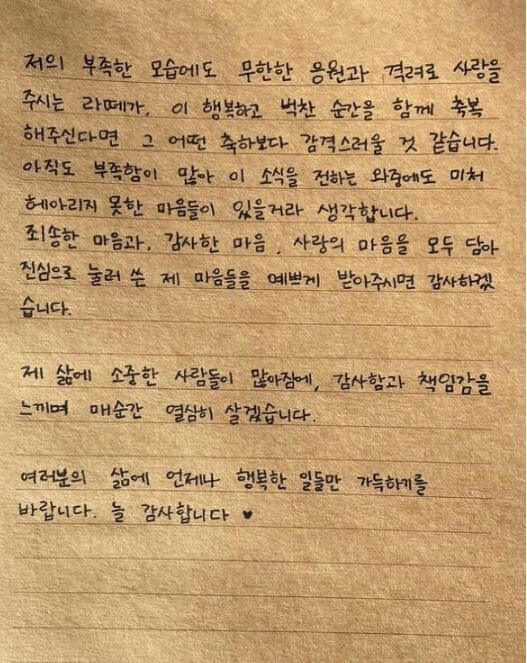 저의 부족한 모습에도 무한한 응원과 격려로 사랑을
주시는 라떼가, 이 행복하고 벅찬 순간을 함께 축복
해주신다면 그 어떤 축하보다 감격스러울 것 같습니다.
아직도 부족함이 많아 이 소식을 전하는 와중에도 미처
헤아리지 못한 마음들이 있을거라 생각합니다.
죄송한 마음과, 감사한 마음, 사랑의 마음을 모두 담아
진심으로 눌러 쓴 제 마음들을 예쁘게 받아주시면 감사하겠
습니다.
제 삶에 소중한 사람들이 많아짐에, 감사함과 책임감을
느끼며 매순간 열심히 살겠습니다.
여러분의 삶에 언제나 행복한 일들만 가득하기를
바랍니다. 늘 감사합니다 ♥